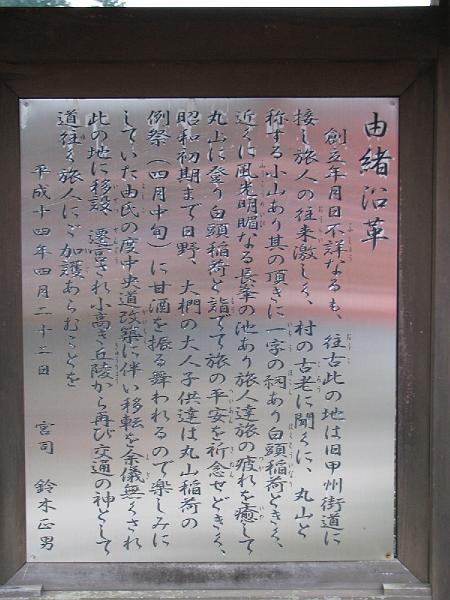 由緒沿革
創立年月日不詳なるも、往古此の地は旧甲州街道に
接し旅人の往来激しく、村の古老に聞くに、丸山と
称する小山あり其の頂きに一宇の祠あり白頭稲荷ときく、
近くに風光明媚なる長筆の池あり旅人達旅の疲れを癒して
丸山に登り白頭稲荷と詣でて旅の平安を祈念せどきく、
昭和初期まで日野、大椚の大人子供達は丸山稲荷の
例祭（四月中旬）に甘酒を振る舞われるので楽しみに
していた由氏の度中央道改築に伴い移転を余儀無くされ
此の地に移設、遷宮され小高き丘陵から再び交通の神として
道往く旅人にご加護あらむことを
平成十四年四月二十二日
宮司 鈴木正男